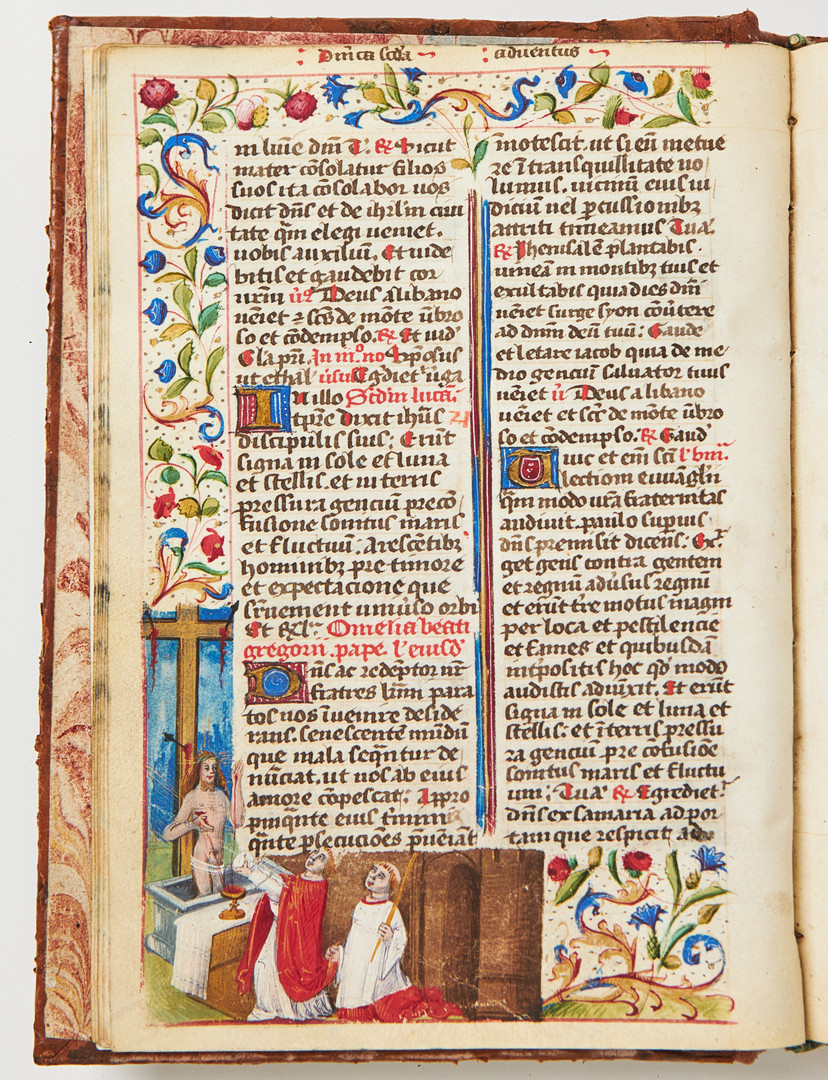 Dnica scda aduentus
in lumē dm̄ V. ℟ Sicut
mater cōsolatur filios
suos ita cōsolabor uos
dicit dn̄s et de ihrl̄m ciui
tate qm̄ elegi ueniet.
uobis auxiliū. Et uide
bitis et gaudebit cor
ur̄m Deus a libano
ueniet ⁊ scs̄ de mōte ūbro
so et cōdempso. ℟ Et uid
In illo Scdm lucā.
tpr̄e dixit ihūs
discipulis suis: Erūt
signa in sole et luna
et stellis. et in terris
pressura genciū precō
fusione sonitus maris
et fluctuū. Arescētibꝫ
hominibꝫ pre timore
et expectacione que
supuenient uniuso orbi
Et Rl̄. Omelia beati
gregorii. pape. l' eiusd'
Dn̄s ac redēptor nr̄
fratres k̄mi para
tos nos īuenire deside
rans. senescentē mūdū
que mala seqn̄tur de
nūciat. ut nos ab eius
amore cōpescat: Appro
pinqn̄te eius t̄minū
qn̄te psecuciōes pueniāt
īnotescit. ut si eū metue
re ī transquillitate no
lumus. uicinū eius iu
diciū uel percussionibꝫ
attriti timeamus Tuā.
℟ Jherusalē plantabis
uineam in montibꝫ tuis et
exultabis quia dies dm̄i
ueniet surge syon cōuertere
ad dnm̄ deū tuū: Gaude
et letare iacob quia de me
dio genciū saluator tuus
ueniet Deus a libano
ueniet et scs̄ de mōte ūbro
so et cōdempso. ℟ Gaud'
Huic et em̄ sc̄i
lectioni euuāgln̄
qm̄ modo ur̄a fraternitas
audiuit. paulo supius
dn̄s premisit dicens. Ex
get gens contra gentem
et regnū adūsus regnū
et erūt tr̄e motus magni
per loca et pestilencie
et fames et quibusdā
int̄positis hoc qd̄ modo
audistis adiūxit. Et erūt
signa in sole et luna et
stellis: et ī terris pressu
ra genciū pre cōfusiōe
sonitus maris et fluctu
um: Tuā ℟ Egrediet'
dn̄s ex samaria ad por
tam que respicit ad